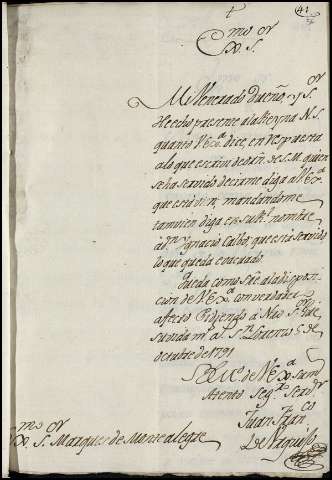 41
†
mo or
Ex. S.
Mi Venerado Dueño, y S.or
He echo presente a la Reyna N. S.
quanto V. Ex.a dice en respuesta
a lo que escrivi de orñ. de S. M. quien
se ha servido decirme diga a V. Ex.a
que esta vien; mandandome
tamvien diga en su Rl. nombre
a dn. Ygnacio Calbo, que esta servido
lo que queda evacuado.
Queda como siẽ. a la dispo
sicion de V. Ex.a con verdadero
afecto Pidiendo a Nro S.or gũe
su vida m.s a.s S.n Lorenzo 5 de
octubre de 1791
BLM. de V. Ex.a su m.r
Atento Seg.o Serv.r
Juan Fran.co
mo or
Ex. S. Marques de Montealegre